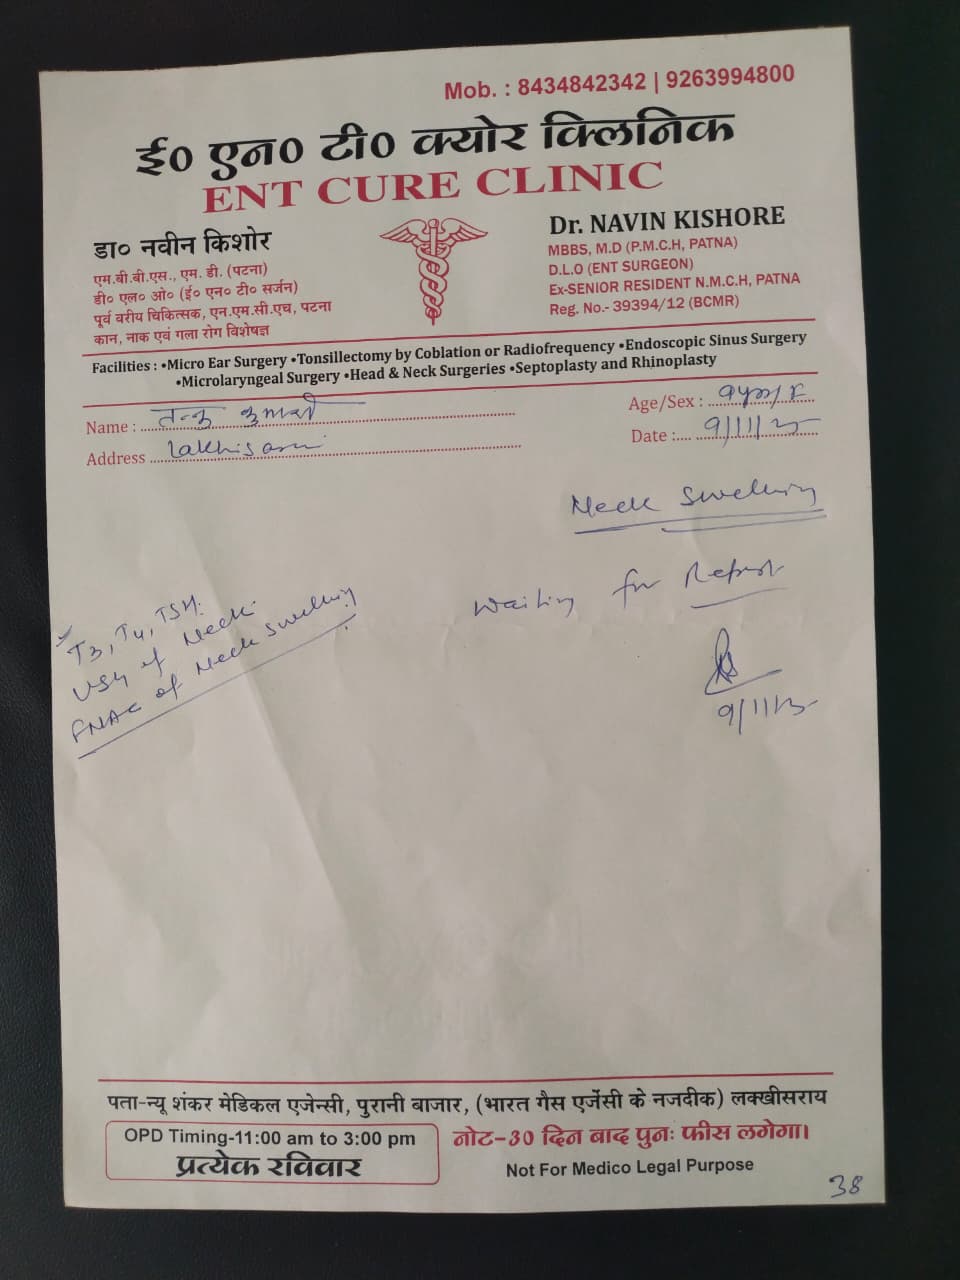 Mob. : 8434842342 | 9263994800
ई० एन० टी० क्योर क्लिनिक
ENT CURE CLINIC
डा० नवीन किशोर
एम.बी.बी.एस., एम. डी. (पटना)
डी० एल० ओ० (ई० एन० टी० सर्जन)
पूर्व वरीय चिकित्सक, एन.एम.सी.एच, पटना
कान, नाक एवं गला रोग विशेषज्ञ
Dr. NAVIN KISHORE
MBBS, M.D (P.M.C.H, PATNA)
D.L.O (ENT SURGEON)
Ex-SENIOR RESIDENT N.M.C.H, PATNA
Reg. No.- 39394/12 (BCMR)
Facilities : •Micro Ear Surgery •Tonsillectomy by Coblation or Radiofrequency •Endoscopic Sinus Surgery
•Microlaryngeal Surgery •Head & Neck Surgeries •Septoplasty and Rhinoplasty
Name :
Age/Sex :
Address Lakhisarai
Date : 9/11/25
Neck Swelling
Waiting for Report
T3, T4, TSH.
USG of Neck
FNAC of Neck Swelling
9/11/25
पता-न्यू शंकर मेडिकल एजेन्सी, पुरानी बाजार, (भारत गैस एजेंसी के नजदीक) लक्खीसराय
OPD Timing-11:00 am to 3:00 pm
प्रत्येक रविवार
नोट-30 दिन बाद पुनः फीस लगेगा।
Not For Medico Legal Purpose
38